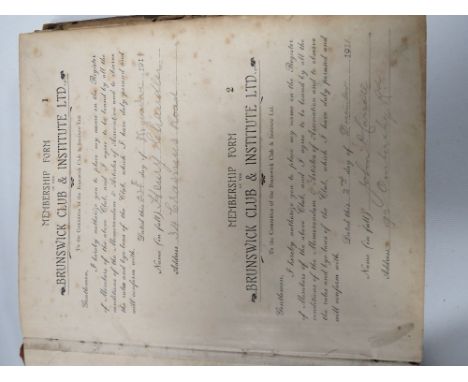 1
MEMBERSHIP FORM
OF THE
BRUNSWICK CLUB & INSTITUTE LTD.
To the Committee of the Brunswick Club & Institute Ltd.
Gentlemen,
I hereby authorize you to place my name in the Register
of Members of the above Club, and I agree to be bound by all the
conditions of the Memorandum & Articles of Association and to observe
the rules and bye laws of the Club, which I have duly perused and
will conform with.
Dated this day of 191
Name (in full) Henry Chandler
Address Road
2
MEMBERSHIP FORM
OF THE
BRUNSWICK CLUB & INSTITUTE LTD.
To the Committee of the Brunswick Club & Institute Ltd.
Gentlemen,
I hereby authorize you to place my name in the Register
of Members of the above Club, and I agree to be bound by all the
conditions of the Memorandum & Articles of Association and to observe
the rules and bye laws of the Club, which I have duly perused and
will conform with.
Dated this day of 191
Name (in full) John
Address